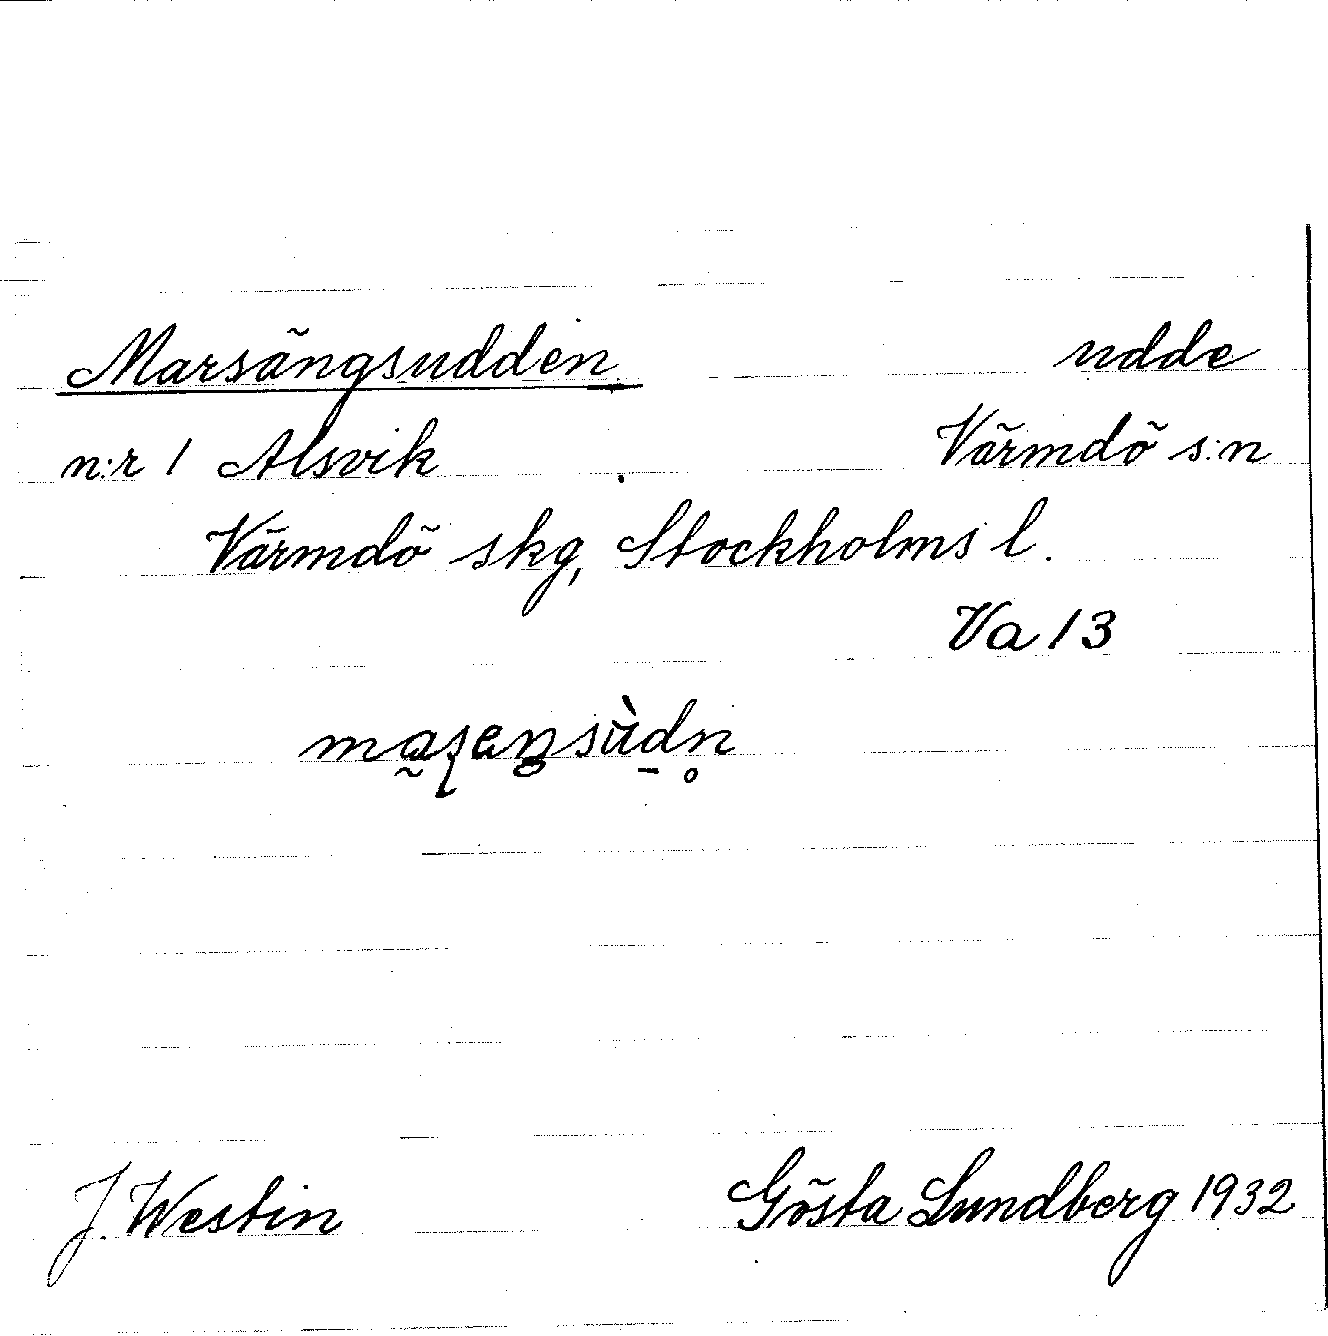 Marsängsudden udde
n:r 1 Alsvik Värmdö s:n
Värmdö skg, Stockholms l.
Va 13
J. Westin Gösta Lundberg 1932